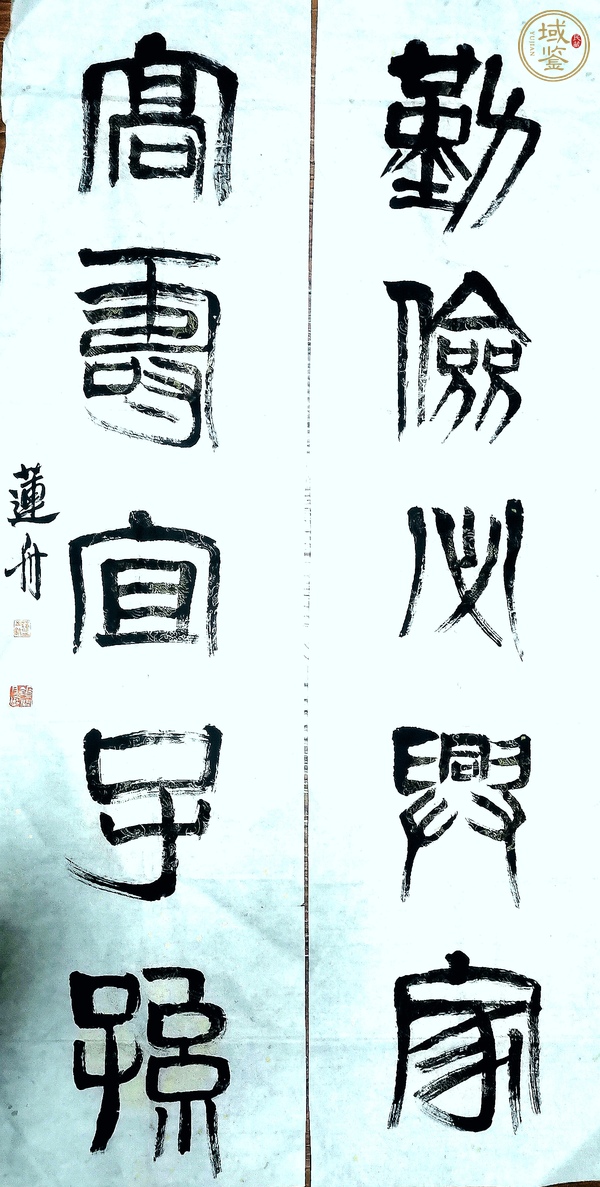 勤儉必興家
高壽宜子孫
蓮舟
域鉴
YUJIAN